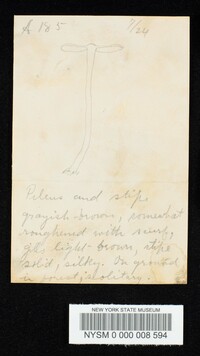 7/24
Pileus and stipe
grayish-brown, somewhat
roughened with scurf,
gills light brown, stipe
solid, silky. On ground
in forest, solitary.
NEW YORK STATE MUSEUM
NYSM 0 000 008 594